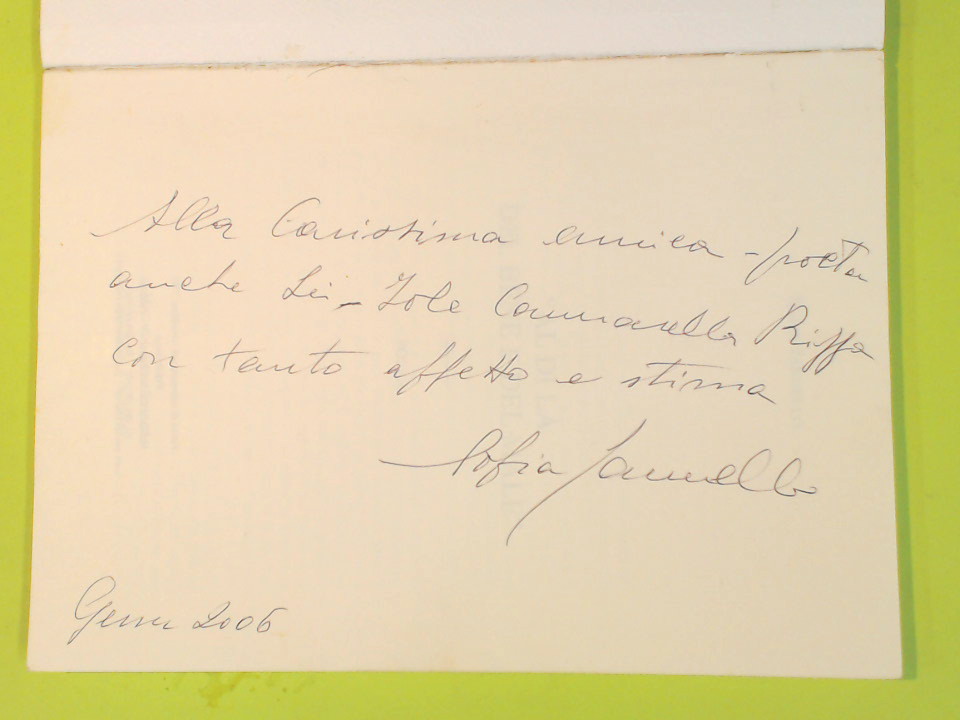 Alla Carissima amica - poeta
anche Lei - Iole Cammarella Riffa
con tanto affetto e stima
Sofia
2006